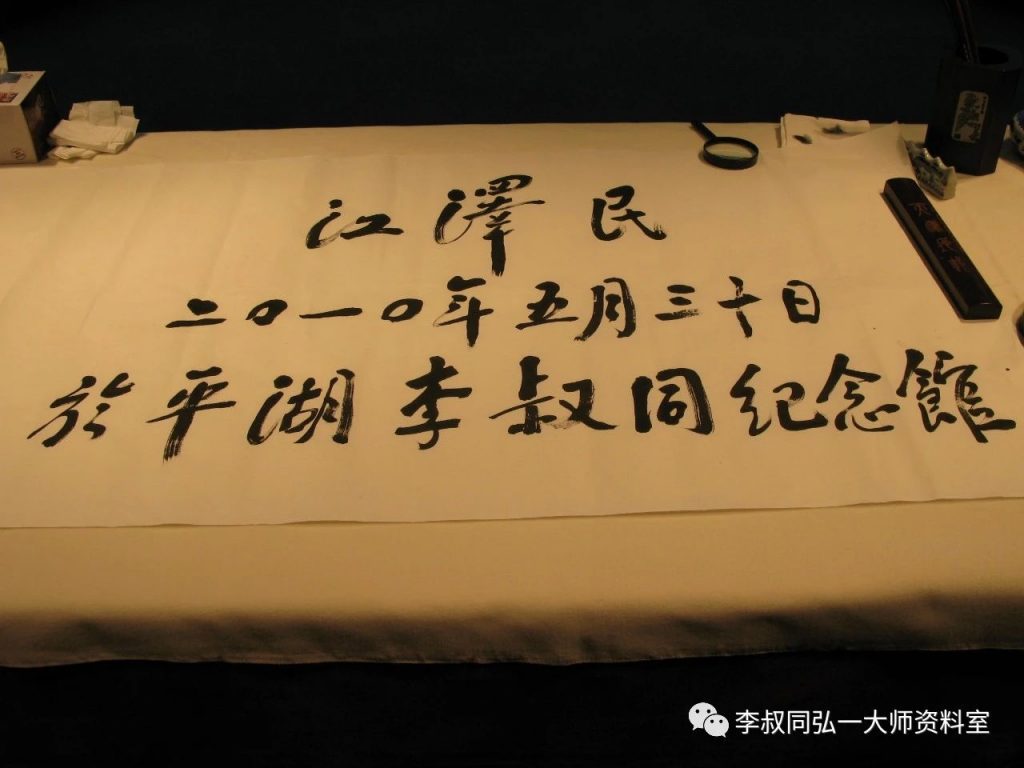 江澤民
二〇一〇年五月三十日
於平湖李叔同紀念館
李叔同弘一大师资料室